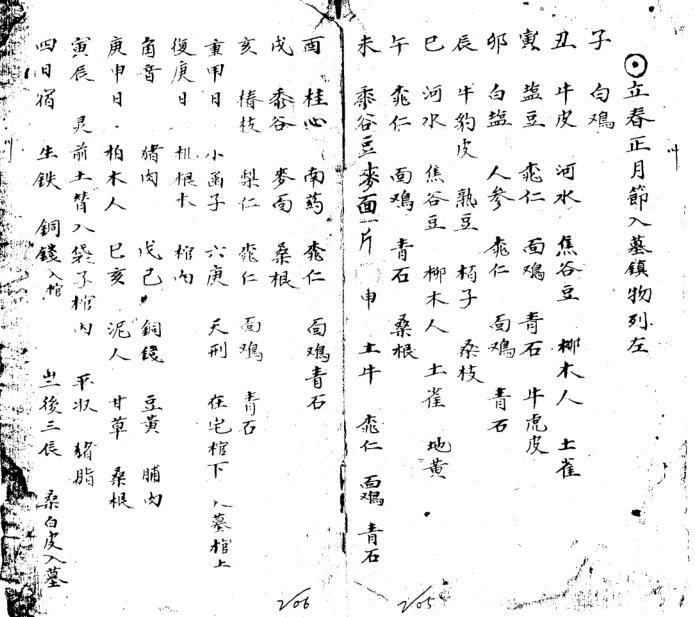 立春正月節入墓鎮物列左
子 白鳮
丑 牛皮 河水 焦谷豆 柳木人 土雀
寅 塩豆 桃仁 面鳮 青石 牛虎皮
卯 白塩 人参 桃仁 面鳮 青石
辰 牛豹皮 熟豆 栢子 桑枝
巳 河水 焦谷豆 柳木人 土雀 地黄
午 桃仁 面鳮 青石 桑根
未 黍谷豆 麥面一片 申 土牛 桃仁 面鳮 青石
酉 桂心 南药 桃仁 面鳮 青石
戌 黍谷 麥面 桑根
亥 椿枝 梨仁 桃仁 面鳮 青石
重甲日 小函子 六庚 天刑 在宅棺下 入墓棺上
復庚日 机根木 棺内
商音 猪肉 戊己 銅錢 豆黄 脯肉
庚申日 柏木人 巳亥 泥人 甘草 桑根
寅辰 灵前土 入袋子棺内 平収 猪脂
四日宿 生鉄 銅鏡入棺 後三辰 桑白皮入墓
206
205